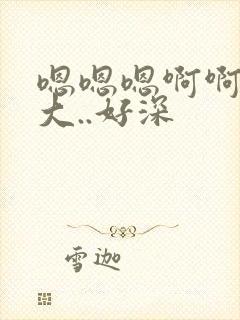 嗯嗯嗯啊啊
大..好深
雪迦